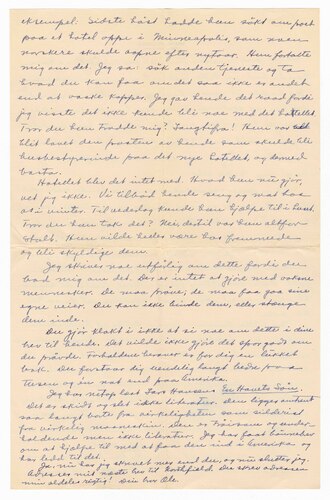 eksempel: Sidste høst hadde hun søkt om post
paa et hotel oppe i Minneapolis, som noen
norskere skulde aapne efter nytaar. Hun fortalte
mig om det. Jeg sa: søk anden tjeneste og ta
hvad du kan faa om det saa ikke er andet
end at vaske kopper. Jeg gav hende det raad fordi
jeg visste det ikke kunde bli noe med det hotellet.
Tror du hun trodde mig? Langtifra! Hun var
blit lovet den posten av hende som skulde bli
husbestyrerinde paa det nye hotellet, og dermed
basta.
Hotellet blev det intet med. Hvad hun nu gjør,
vet jeg ikke. Vi tilbød hende seng og mat hos
os i vinter. Til vederlag kunde hun hjelpe til i huset.
Tror du hun tok det? Nei, dertil var hun altfor
stolt. Hun vilde heller være hos fremmede
og bli skyldige dem.
Jeg skriver saa utførlig om dette fordi du
bad mig om det. Der er intet at gjøre med voksne
mennesker. De maa prøve, de maa faa gaa sine
egne veier. Du kan ikke binde dem, eller stænge
dem inde.
Du gjør klokt i ikke at si noe om dette i dine
brev til hende. Det vilde ikke gjøre det spor godt om
du prøvde. Forholdene herover er for dig en lukket
bok. De forstaar dig uendelig langt bedre paa
Thesen og en nat end paa Amerika.
Jeg har netop læst Lars Hansens En Havets Søn.
Det er skidt og slet ikke literatur. Den ligger omtrent
saa langt borte fra virkeligheten som silderist
fra virkelig mannaskin. Den er morsom og under-
holdende men ikke literatur. Jeg har faat
om at hjelpe til med at faa den ind i Amerika og
har ledd til det.
Ja, nu har jeg skrevet mig tund du, og nu slutter jeg.
Adresser mit næste brev til Northfield. Du skrev adressen
min aldeles rigtig! Din bror Ole.